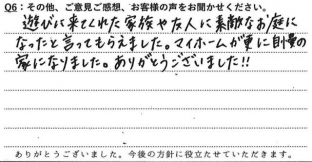 Q6：その他、ご意見ご感想、お客様の声をお聞かせください。
遊びに来てくれた家族や友人に素敵なお庭に
なったと言ってもらえました。マイホームが更に自慢の
家になりました。ありがとうございました!!
ありがとうございました。今後の方針に役立たせていただきます。